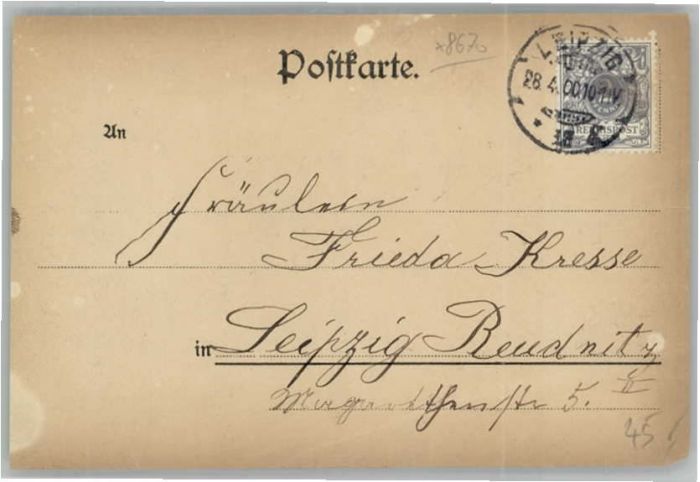 Postkarte.
*8670
LEIPZIG
28.4.00.10-11V.
REICHSPOST
An
Fräulein
Frieda Kresse
in Leipzig Reudnitz
5. II
45